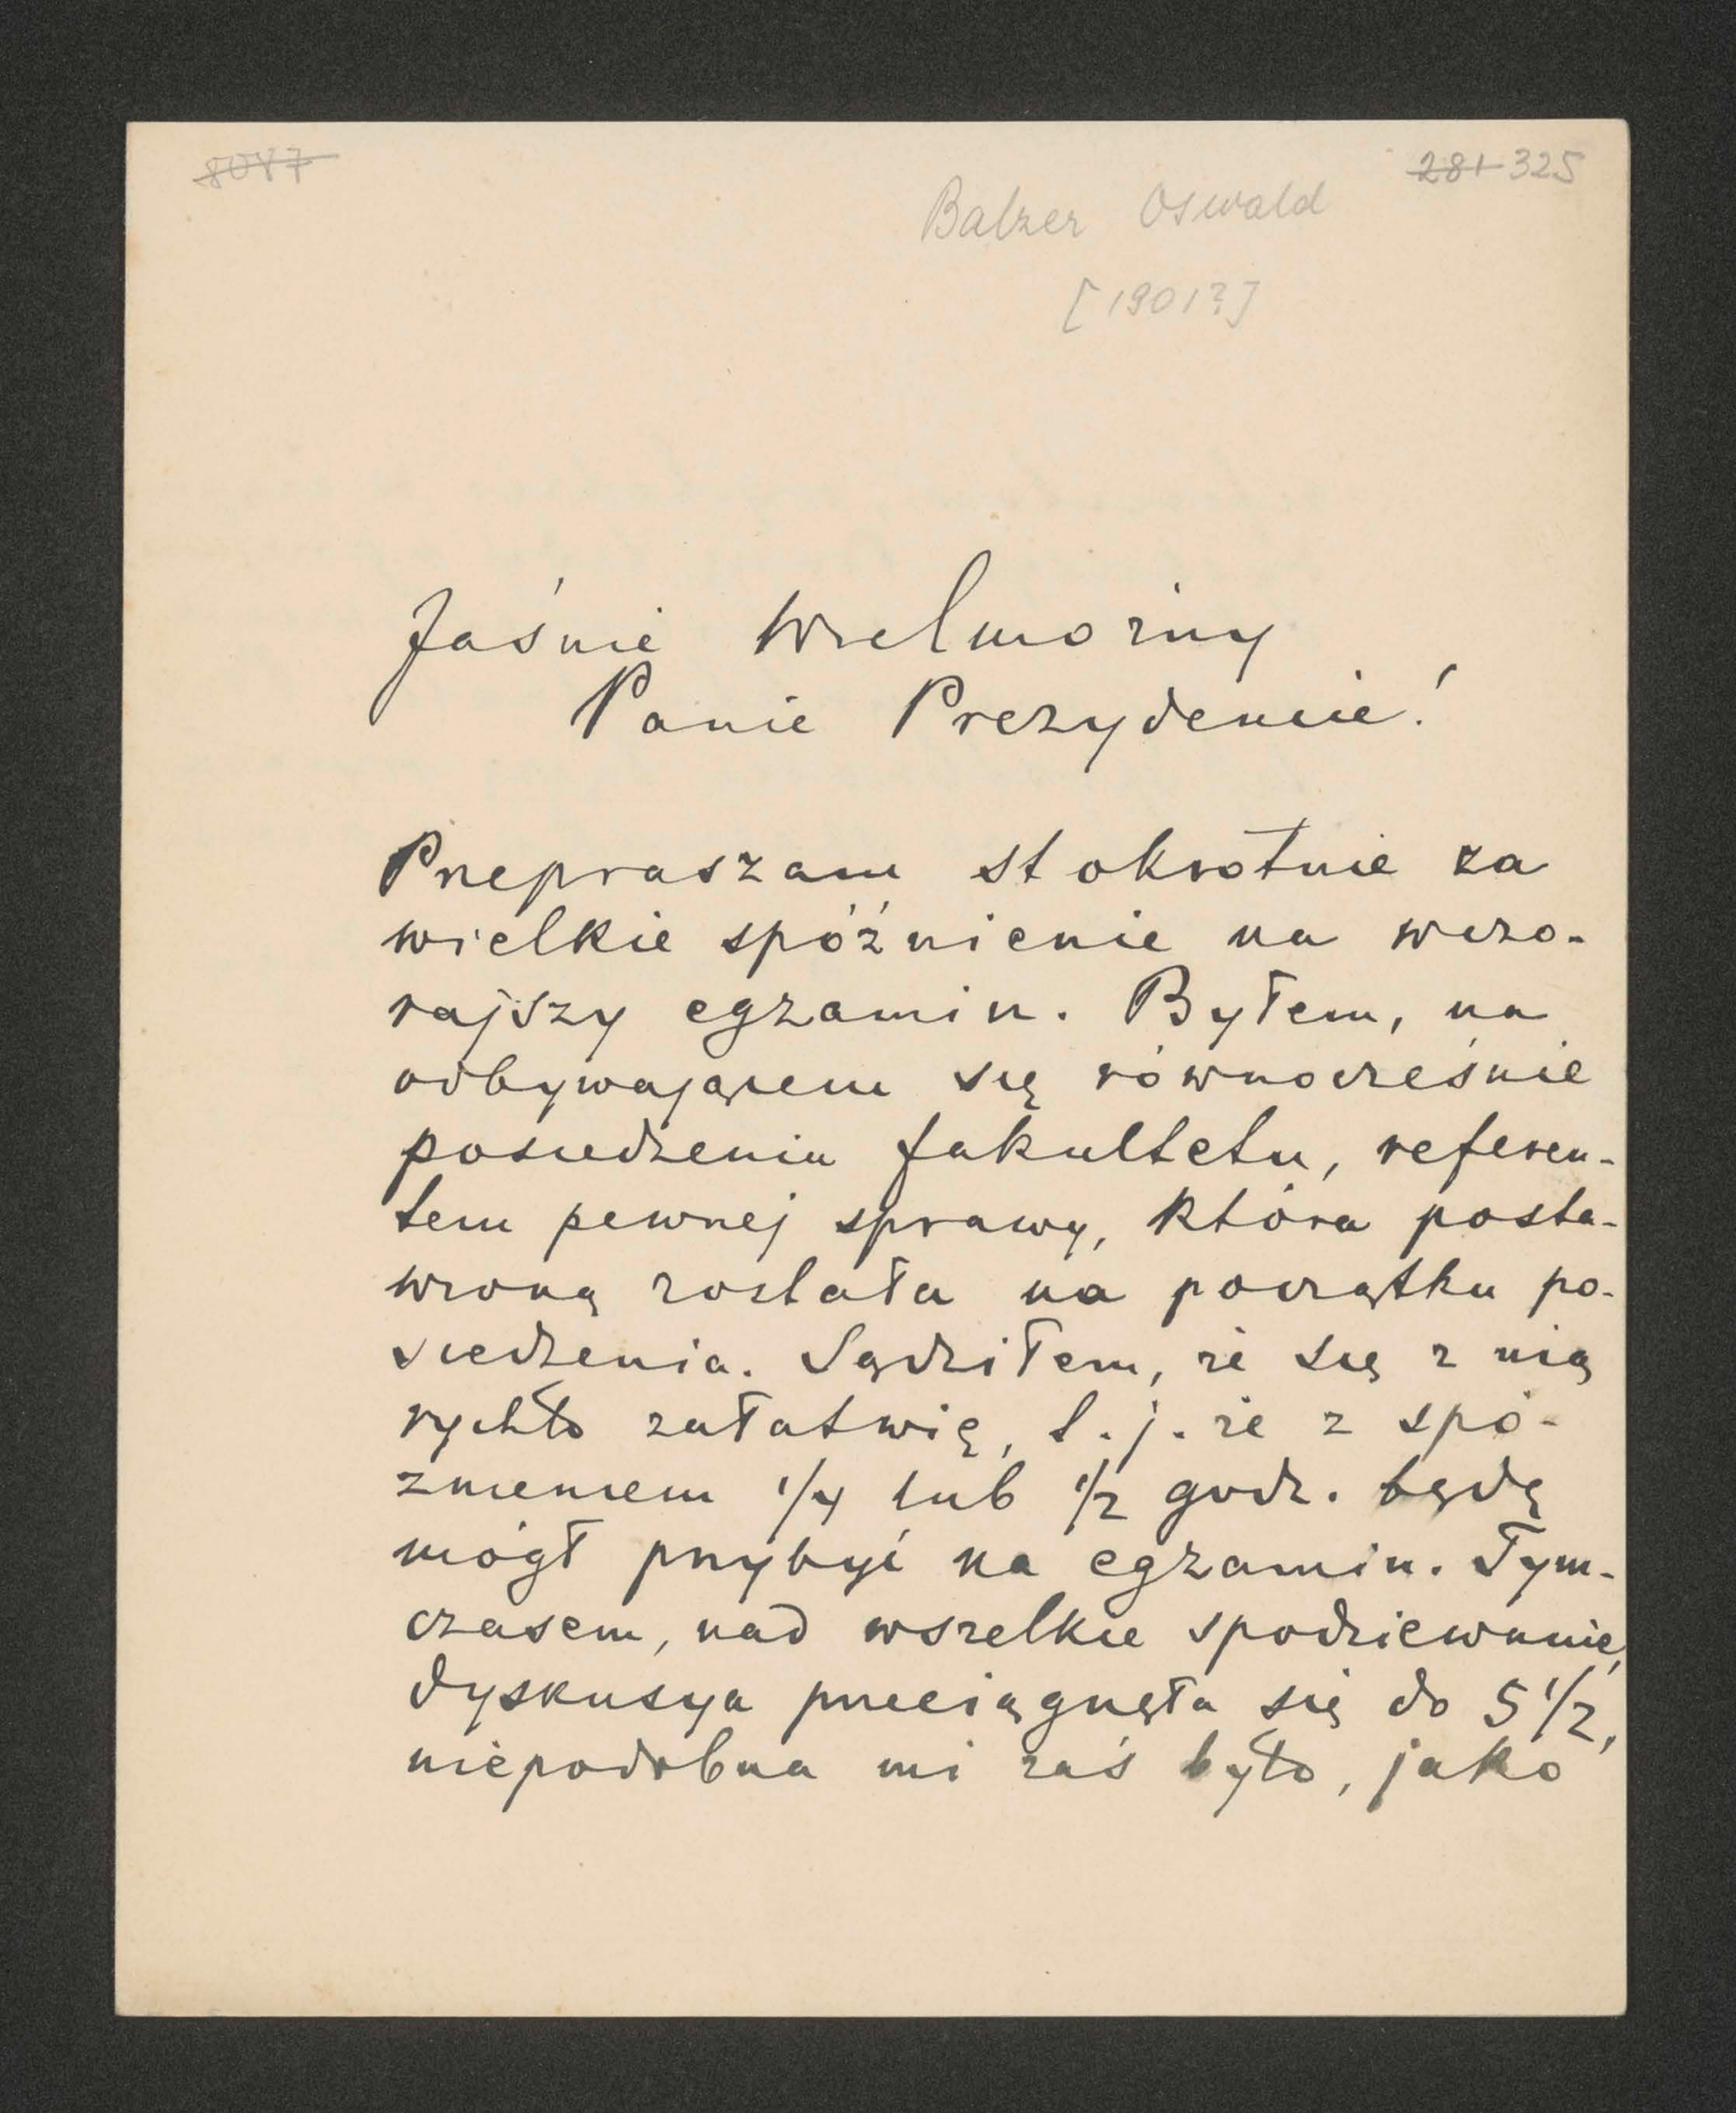 8087
281 325
Balzer Oswald
[1901?]
Jaśnie Wielmożny
Panie Prezydencie!
Przepraszam stokrotnie za
wielkie spóźnienie na wczo-
rajszy egzamin. Byłem, na
odbywającem się równocześnie
posiedzeniu fakultetu, referen-
tem pewnej sprawy, która posta-
wioną została na początku po-
siedzenia. Sądziłem, że się z nią
rychło załatwię, t. j. że z spó-
źnieniem 1/4 lub 1/2 godz. będę
mógł przybyć na egzamin. Tym-
czasem, nad wszelkie spodziewanie,
dyskusya przeciągnęła się do 5 1/2,
niepodobna mi zaś było, jako